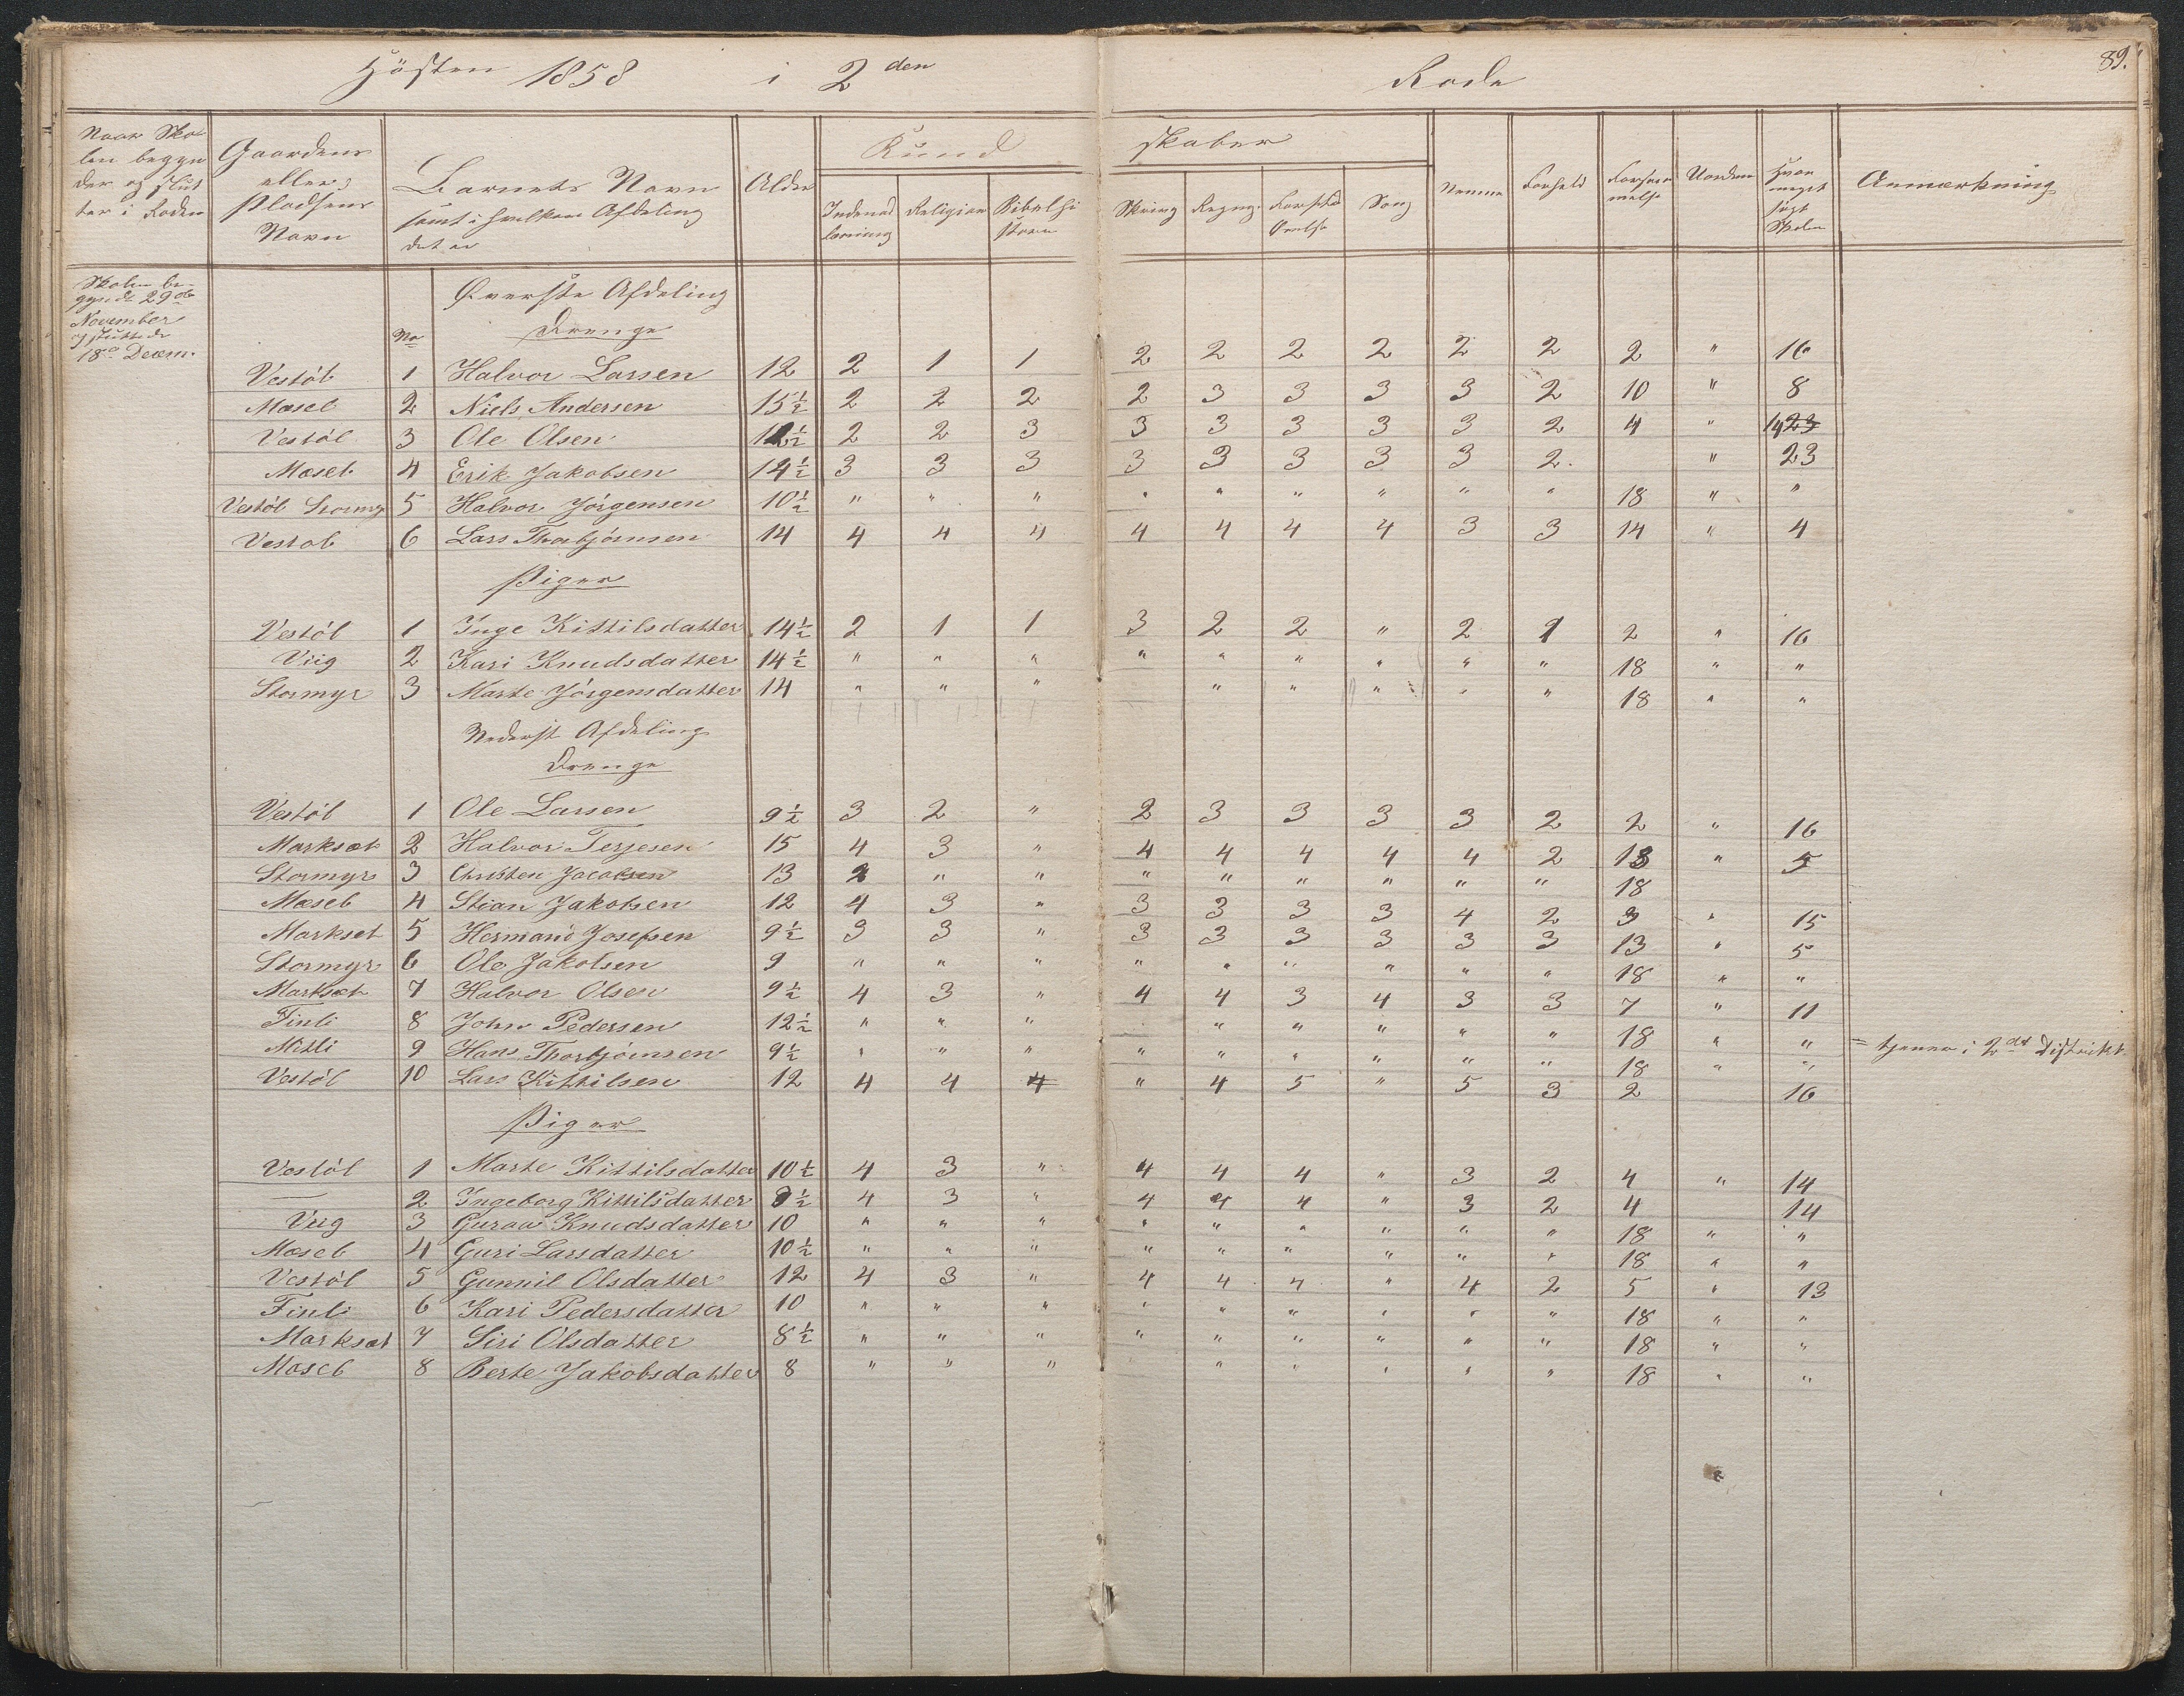 Hösten 1858 i 2den Rode
89.
Naar Sko-
len begyn
der og slut
ter i Roden
Gaardens
eller
Pladsens
Navn
Barnets Navn
samt i hvilken Afdeling
det er
Alder
Kundskaber
Indenad
læsning
Religion
Bibelhi
storie
Skrivng
Regng.
Forstds
Øvelse
Sang
Nemme
Forhold
Forsøm
melse
Uorden
Hvor
meget
søgt
Skolen
Anmærkning
Skolen be-
gyndt 29de
November
og sluttede
18de Decem.
No
Øverste Afdeling
Drenge
Vestöl 1 Halvor Larsen 12 2 1 1 2 2 2 2 2 2 2 " 16
Mosel 2 Niels Andersen 15½ 2 2 2 2 3 3 3 3 2 10 " 8
Vestöl 3 Ole Olsen 12½ 2 2 3 3 3 3 3 3 2 4 " 14 23
Mosel 4 Erik Jakobsen 14½ 3 3 3 3 3 3 3 3 2. " 23
Vestöl Stormyr 5 Halvor Jörgensen 10½ " " " " " " " " " 18 " "
Vestöl 6 Lars Thorbjörnsen 14 4 4 4 4 4 4 4 3 3 14 " 4
Piger
Vestöl 1 Inge Kittilsdatter 14½ 2 1 1 3 2 2 " 2 1 2 " 16
Viig 2 Kari Knudsdatter 14½ " " " " " " " " " 18 " "
Stormyr 3 Marte Jörgensdatter 14 " " " " " " " " 18 " "
Nederst Afdeling
Drenge
Vestöl 1 Ole Larsen 9½ 3 2 " 2 3 3 3 3 2 2 " 16
Marksæt 2 Halvor Terjesen 15 4 3 " 4 4 4 4 4 2 13 " 5
Stormyr 3 Christen Jacobsen 13 2 " " " " " " " " 18
Mosel 4 Stian Jakobsen 12 4 3 " 3 3 3 3 4 2 3 " 15
Markset 5 Hermand Josefsen 9½ 3 3 " 3 3 3 3 3 3 13 " 5
Stormyr 6 Ole Jakobsen 9 " " " " " " " " " 18 " "
Marksæt 7 Halvor Olsen 9½ 4 3 " 4 4 3 4 3 3 7 " 11
Finli 8 John Pedersen 12½ " " " " " " " " 18 " "
Mitli 9 Hans Thorbjörnsen 9½ " " " " " " " " " 18 " " = tjener i 2det Distrikt.
Vestöl 10 Lars Kittilsen 12 4 4 4 " 4 5 " 5 3 2 16
Piger
Vestöl 1 Marte Kittilsdatter 10½ 4 3 " 4 4 4 " 3 2 4 " 14
— 2 Ingeborg Kittilsdatter 8½ 4 3 " 4 4 4 " 3 2 4 14
Viig 3 Guraa Knudsdatter 10 " " " " " " " " " 18 " "
Mosel 4 Guri Larsdatter 10½ " " " " " " " " " 18 " "
Vestöl 5 Gunnil Olsdatter 12 4 3 " 4 4 4 " 4 2 5 " 13
Finli 6 Kari Pedersdatter 10 " " " " " " " " " 18 " "
Marksæt 7 Siri Olsdatter 8½ " " " " " " " " " 18 " "
Mosel 8 Berte Jakobsdatter 8 " " " " " " " " 18 " "